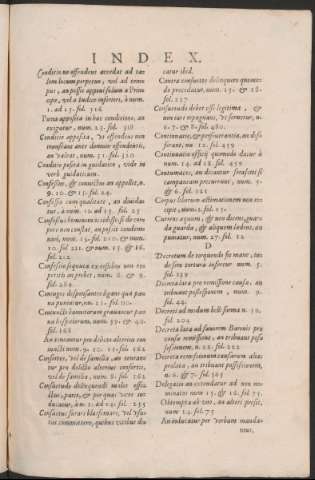 INDEX.
Conditio ne offenderet accedat ad
locum perpetuo, vel ad tem
pus, an possit apponi solum a Prin
cipe, vel a Iudice inferiori, à num.
1. ad 15. fol. 316
Poena apposita in hac conditione, an
exigatur, num. 23. fol. 318
Conditio apposita, vt offendens non
transeat ante domum offendenti,
an valeat, num. 31. fol. 320
Conditio posita in guidatico, vide in
verb. guidaticum.
Confessus, & convictus an appellet, n.
9. 10. & 15. fol. 24
Confessio cum qualitate, an diuida
tur, à num. 10. ad 15. fol. 25
Confessus homicidium, si de cor
pore non constat, an possit condem
nari, num. 15. fol. 210. & num.
20. fol. 211. & num. 15. & 16.
fol. 212
Confessio siquica ex
an probet, num. 8. & 9.
fol. 284
Coniuges dispensantes
na puniuntur, n. 21. fol. 110.
Coniuncti bannitorum grauantur pœ
na hospitiorum, num. 39. & 40.
fol. 168
An teneantur pro debito alterius con
iuncti num. 9. 10. 11. fol. 162
Consortes, vel de familia, an tenean
tur pro delicto alterius consortis,
vel de familia, num. 8. fol. 162
Consuetudo delinquendi
illius, pars, & per quas
ducatur, à n. 1. ad 14. fol. 235
Consuetus furari blasfemare, vel
tus committere, quibus vicibus di
catur ibid.
Contra consuetos delinquere quomo
do procedatur, num. 15. & 18.
fol. 237
Consuetudo debet esse legitima, &
non iuri repugnans, vt seruetur, n.
6. 7. & 8. fol. 480.
Continuatio, & perseuerantia, an dif
ferant, nu. 12. fol. 459
Continuatio officij quomodo dicatur à
num. 14. ad 18. fol. 459
Contumaces, an dicantur forastati si
campanam num. 5.
& 6. fol. 321
Corpus librorum
cipe, num. 2. fol. 15.
Custos equum, & non
da guarda, & aliquem ledens, an
puniatur, num. 27. fol. 12
D
Decretum de torquendo
do fera tortura infertur num. 5.
fol. 239
Decreta lata pro remissione causæ, an
tribuant possessionem, num. 9.
fol. 44.
Decreti ad modum belli forma n. 30.
fol. 204
Decreta lata ad fauorem Baronis pro
causæ remissione, an tribuant pos
sessionem, n. 22. fol. 222
Decreta remissionum causarum alias
prolata, an tribuant possessionem,
n. 6. & 7. fol. 365
Delegatio an extendatur ad non no
minatos num. 15. & 18. fol. 75
Obtempta ab vno, an alteri prosit,
num 14. fol. 75
An educatur per verbum manda-
mus,